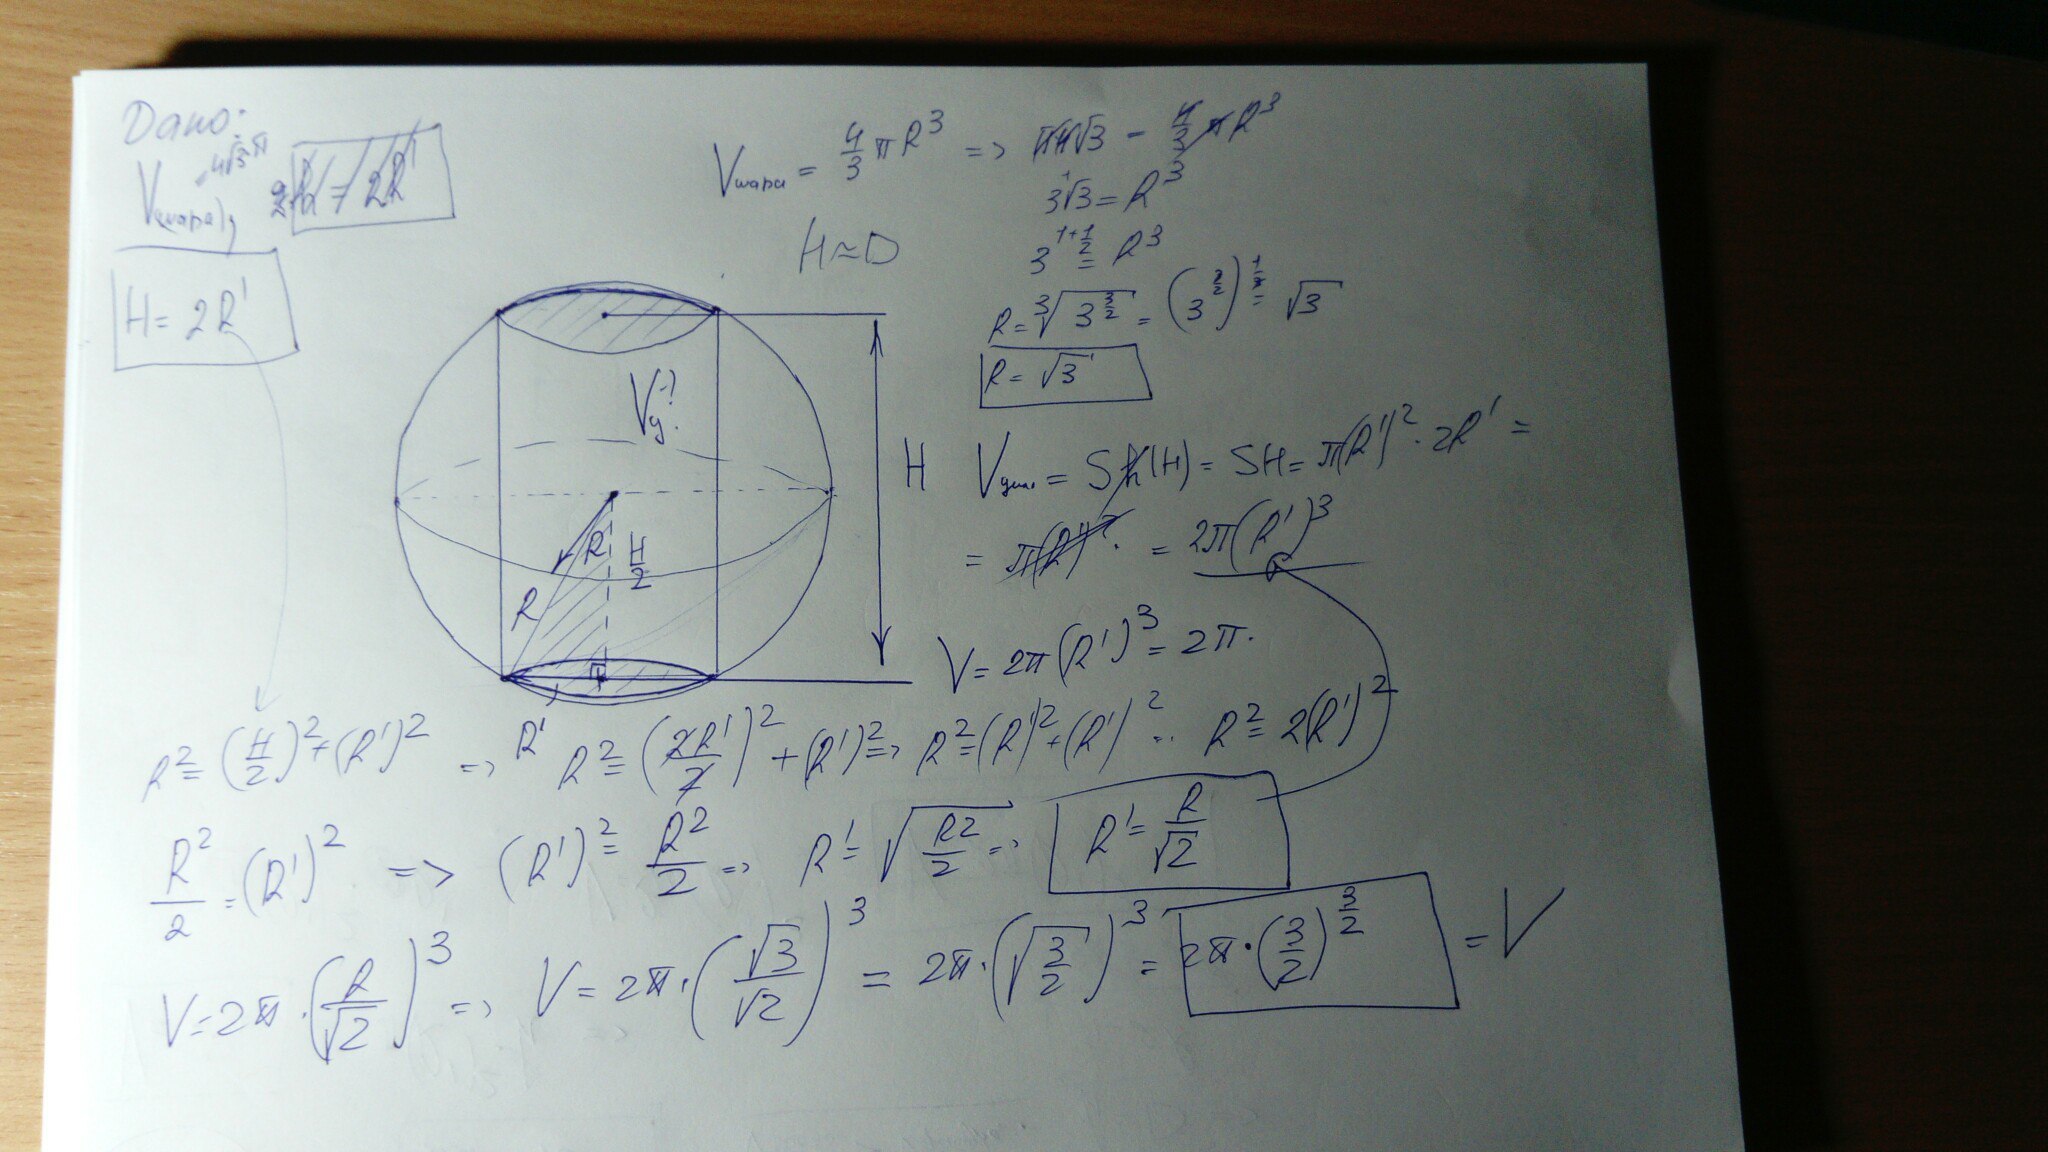 Дано:
V шара = 4√3 π
H = 2R'
V шара = 4/3 πR³ => π4√3 = 4/3 πR³
3√3 = R³
H = D
3^(1+1/2) = R³
R = ∛(3^(3/2)) = (3^(3/2))^(1/3) = √3
R = √3
Vц.?
H
R
H/2
R
R'
V цил. = Sh(H) = SH = π(R')² · 2R' =
= π(R')² · = 2π(R')³
V = 2π(R')³ = 2π·
R² = (H/2)² + (R')² => R² = (2R'/2)² + (R')² => R² = (R')² + (R')² R² = 2(R')²
R²/2 = (R')² => (R')² = R²/2 => R' = √(R²/2) => R' = R/√2
V = 2π · (R/√2)³ => V = 2π · (√3/√2)³ = 2π · (√(3/2))³ = 2π · (3/2)^(3/2) = V